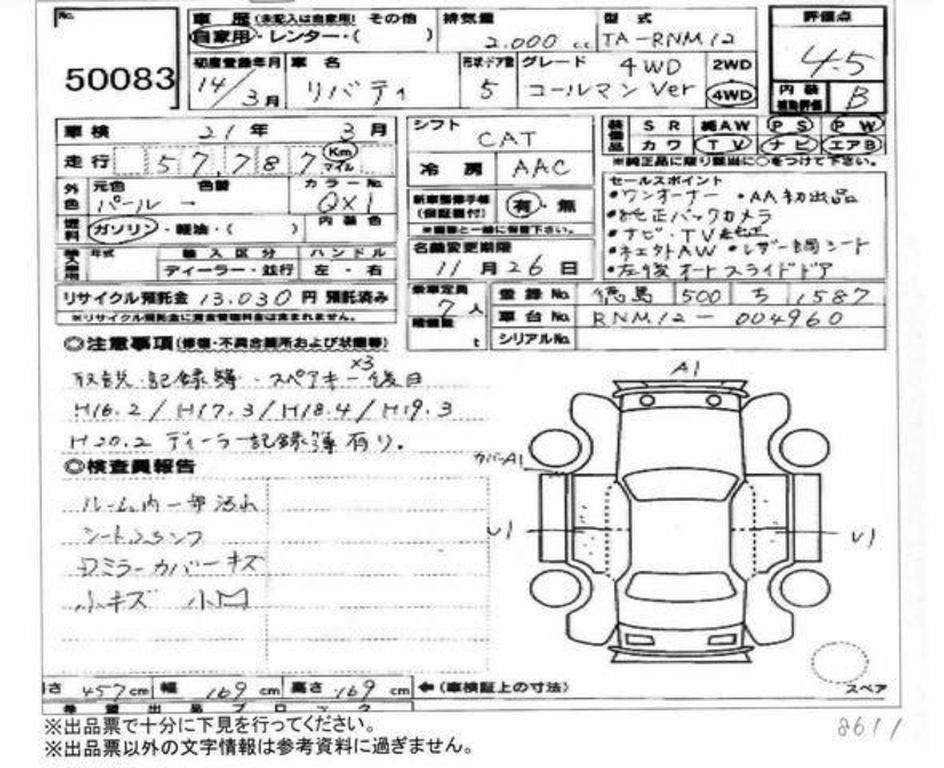 No.
50083
車歴 (未記入は自家用) その他
自家用・レンター・( )
排気量
2.000 cc
型式
TA-RNM12
評価点
4.5
初度登録年月
14/3月
車名
リバティ
形状・ドア数
5
グレード
4WD
コールマン Ver
2WD
4WD
内装
補助評価
B
車検 21年 3月
走行 57,787 Km マイル
外色
元色 色替
パール ー
カラーNo.
QX1
燃料
ガソリン・軽油・( )
内装色
輸入車用
年式
輸入区分
ディーラー・並行
ハンドル
左・右
リサイクル預託金 13.030 円 預託済み
※リサイクル預託金に資金管理料金は含まれません。
シフト
CAT
冷房
AAC
新車整備手帳
(保証書付)
有・無
※書類と一緒に保管下さい。
名義変更期限
11月26日
乗車定員
7人
積載量
t
装備品
SR 純AW PS PW
カワ TV ナビ エアB
※純正品に限り該当に○をつけて下さい。
セールスポイント
•ワンオーナー •AA初出品
•純正バックカメラ
•ナビ・TV 純正
•ネェクトAW •レザー調シート
•左後オートスライドドア
登録No. 徳島 500 ち 1587
車台No. RNM12-004960
シリアルNo.
◎注意事項(修復・不具合箇所および状態等)
取説・記録簿・スペアキーx3後日
H16.2/H17.3/H18.4/H19.3
H20.2 ディーラー記録簿有り。
◎検査員報告
ルーム内一部汚れ
シート
ミラーカバーキズ
小キズ 小凹
A1
カバーA1
U1
U1
スペア
長さ 457cm 幅 169cm 高さ 169cm ←(車検証上の寸法)
希望出品ブロック
※出品票で十分に下見を行ってください。
※出品票以外の文字情報は参考資料に過ぎません。
8611